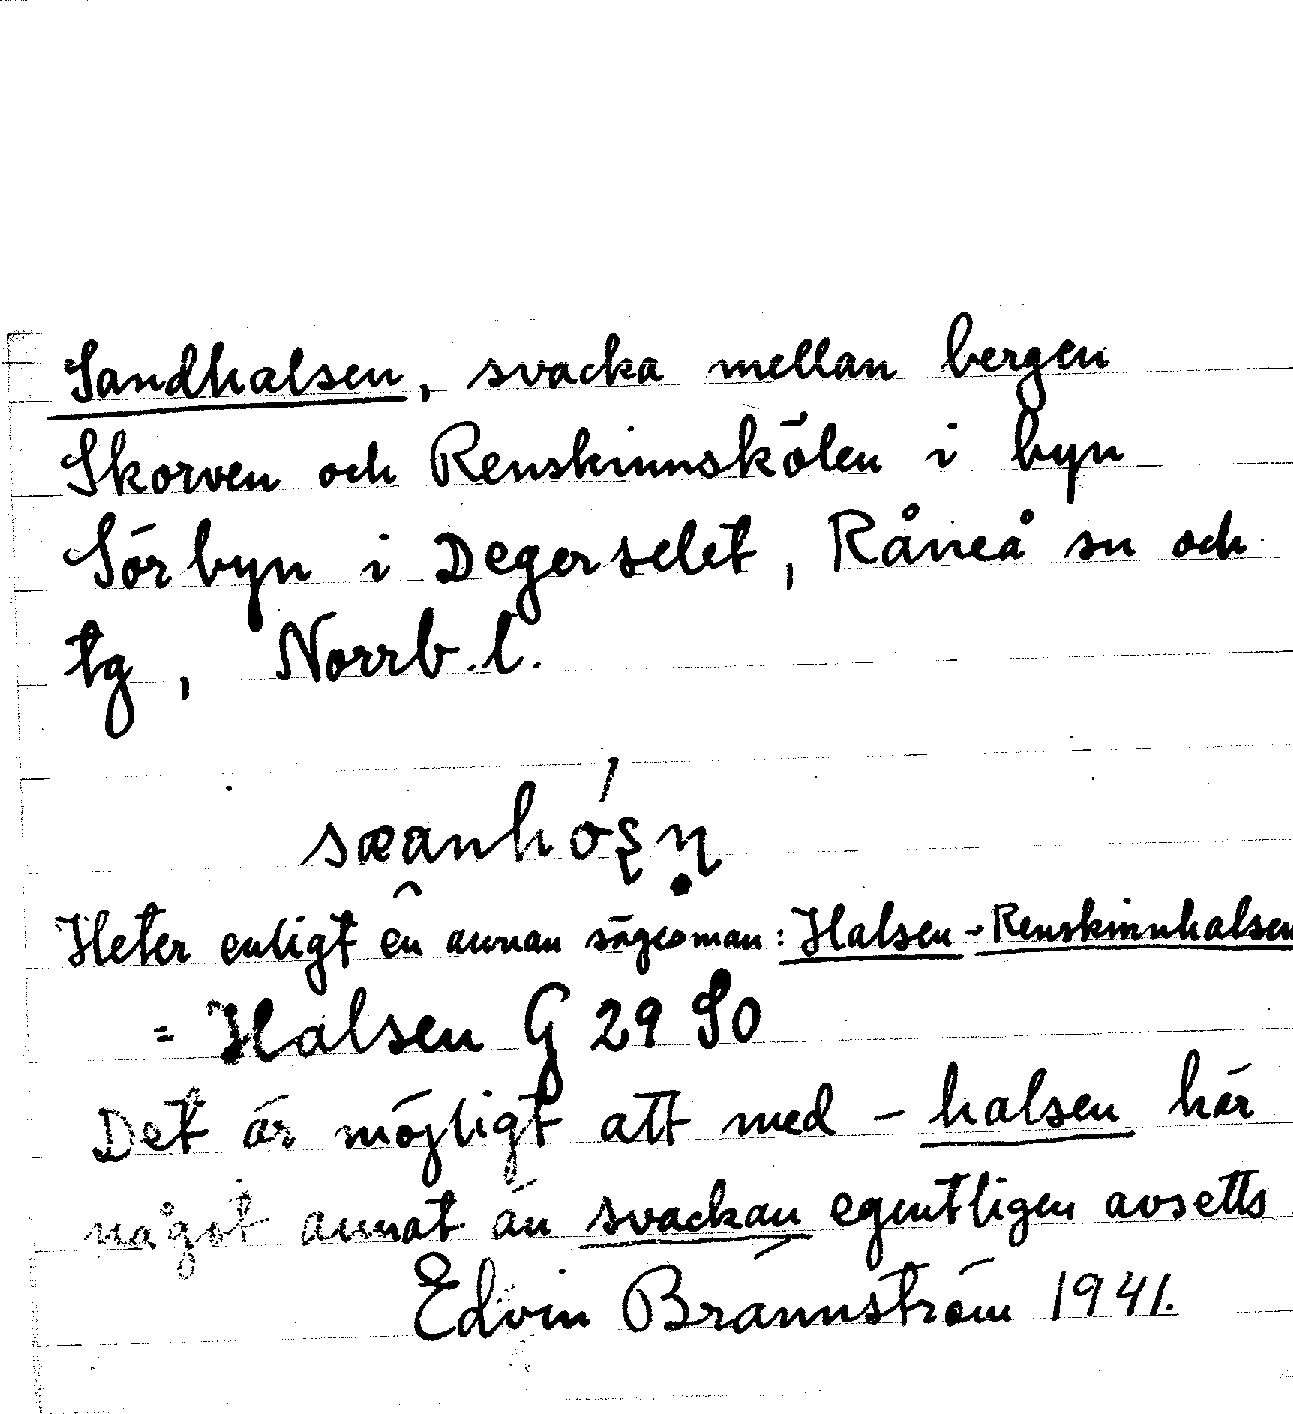 Sandhalsen, svacka mellan bergen
Skorven och Renskinnskölen i byn
Sörbyn i Degerselet, Råneå sn och
tg, Norrb. l.
Heter enligt en annan sagesman: Halsen - Renskinnhalsen
= Halsen G 29 SO
Det är möjligt att med - halsen här
något annat än svackan egentligen avsetts
Edvin Brännström 1941.